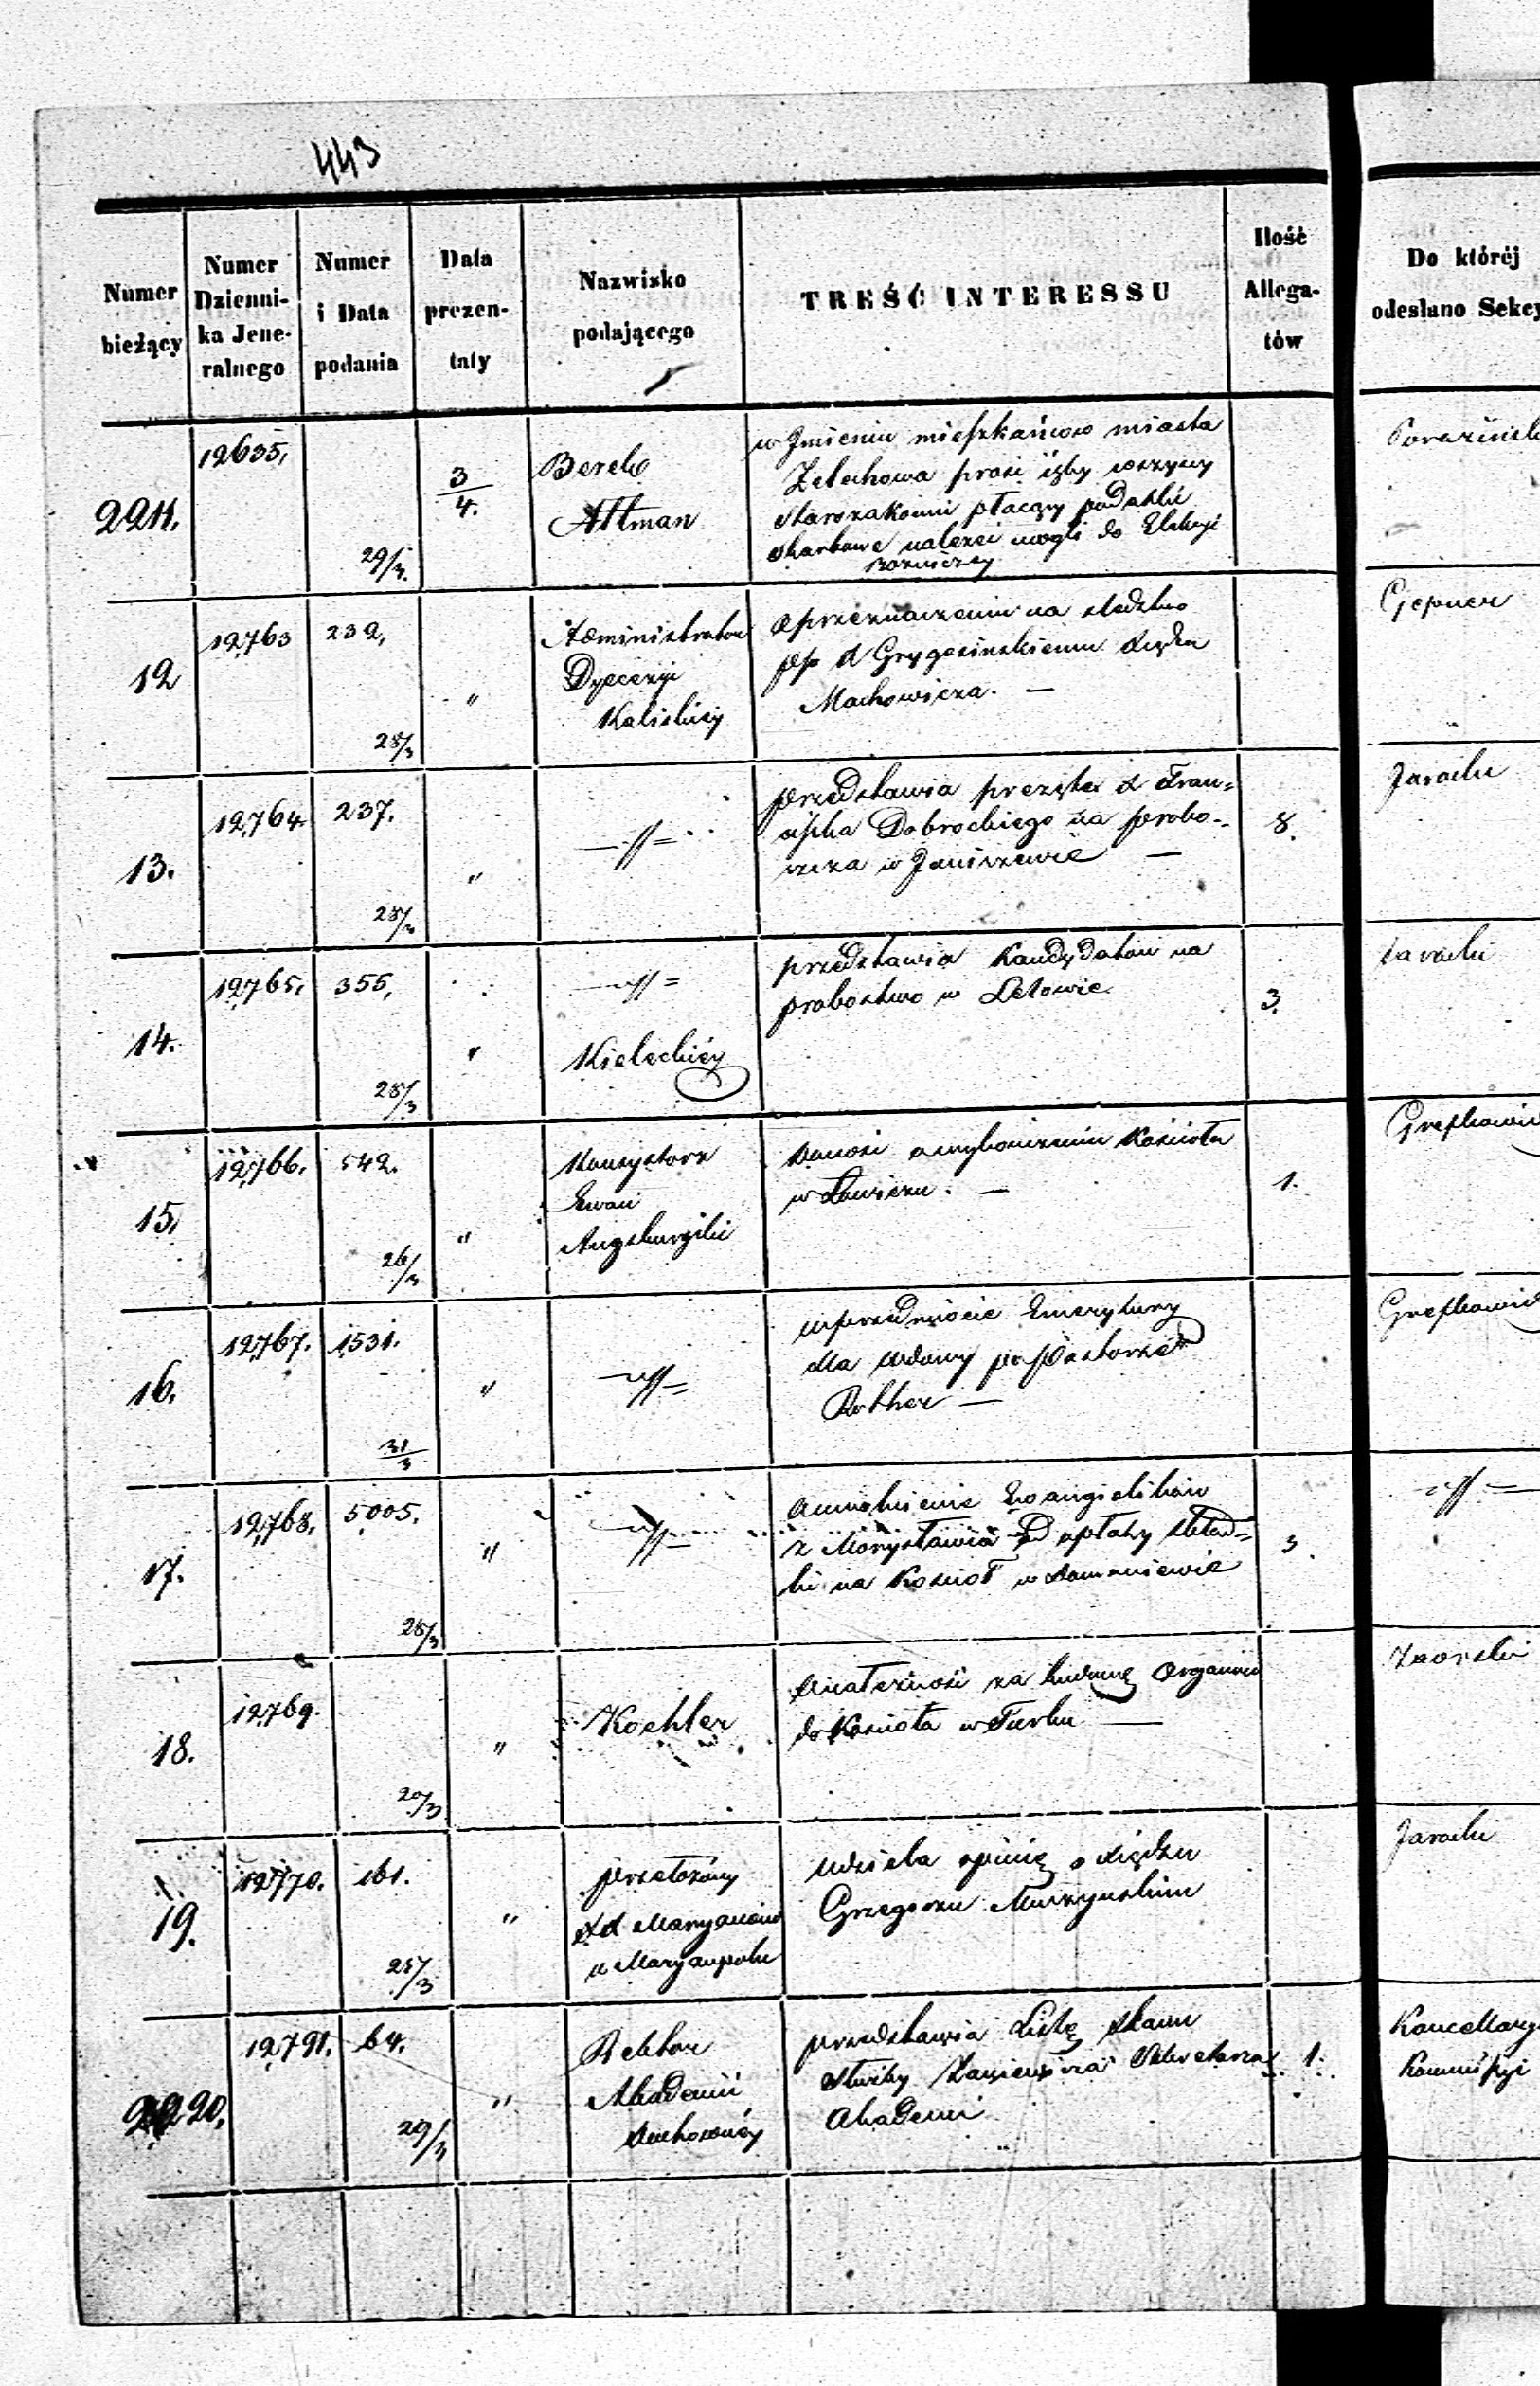 443
Numer bieżący
Numer Dzienni-ka Jene-ralnego
Numer i Data podania
Data prezen-taty
Nazwisko podającego
TREŚĆ INTERESSU
Ilość Allega-tów
Do któréj odesłano Sekcy
2211.
12635,
29/3.
3/4.
Berek
Altman
w Jmieniu mieszkańców miasta
Żelechowa prosi iżby wszyscy
starozakonni płacący podatki
skarbowe należeć mogli do Elekcyi
Bożniczey
12
12763
232,
28/3
"
Administrator
Dyecezyi
Kaliskiey
o przeznaczeniu na śledztwo
Machowicza. —
Gepner
13.
12,764.
237.
28/3
"
przedstawia prezentę X Fran=
ciszka Dobrockiego na probo-
szcza w Janiszewie —
8.
Jaracki
14.
12765.
355,
28/3
"
Kieleckiéy
przedstawia Kandydatów na
probostwo w Letowie
3.
Jaracki
15,
12,766.
542.
26/3
"
Konsystorz
Ewan
Augsburgski
donosi o wykończeniu Kościoła
w Łowiczu. —
1.
16.
12,767.
1531.
31/3
"
w przedmiocie Emerytury
dla wdowy po Pastorze
Rother —
17.
12,768.
5005.
28/3
"
Ewangielików
od opłaty skład=
ki na Kościoł w
3.
18.
12,769.
20/3
"
Koehler
o należność za budowę Organów
do Kościoła w Turku —
19.
12770.
161.
25/3
"
Przełożony
XX Maryanów
w Maryampolu
udziela opinię o Xiędzu
Grzegorzu
Jaracki
2220.
12,791.
64.
29/3
"
Rektor
Akademii
Duchownéy
przedstawia Listę stanu
służby Sekretarza
Akademii
1.
Kancellarya
Kommissyi